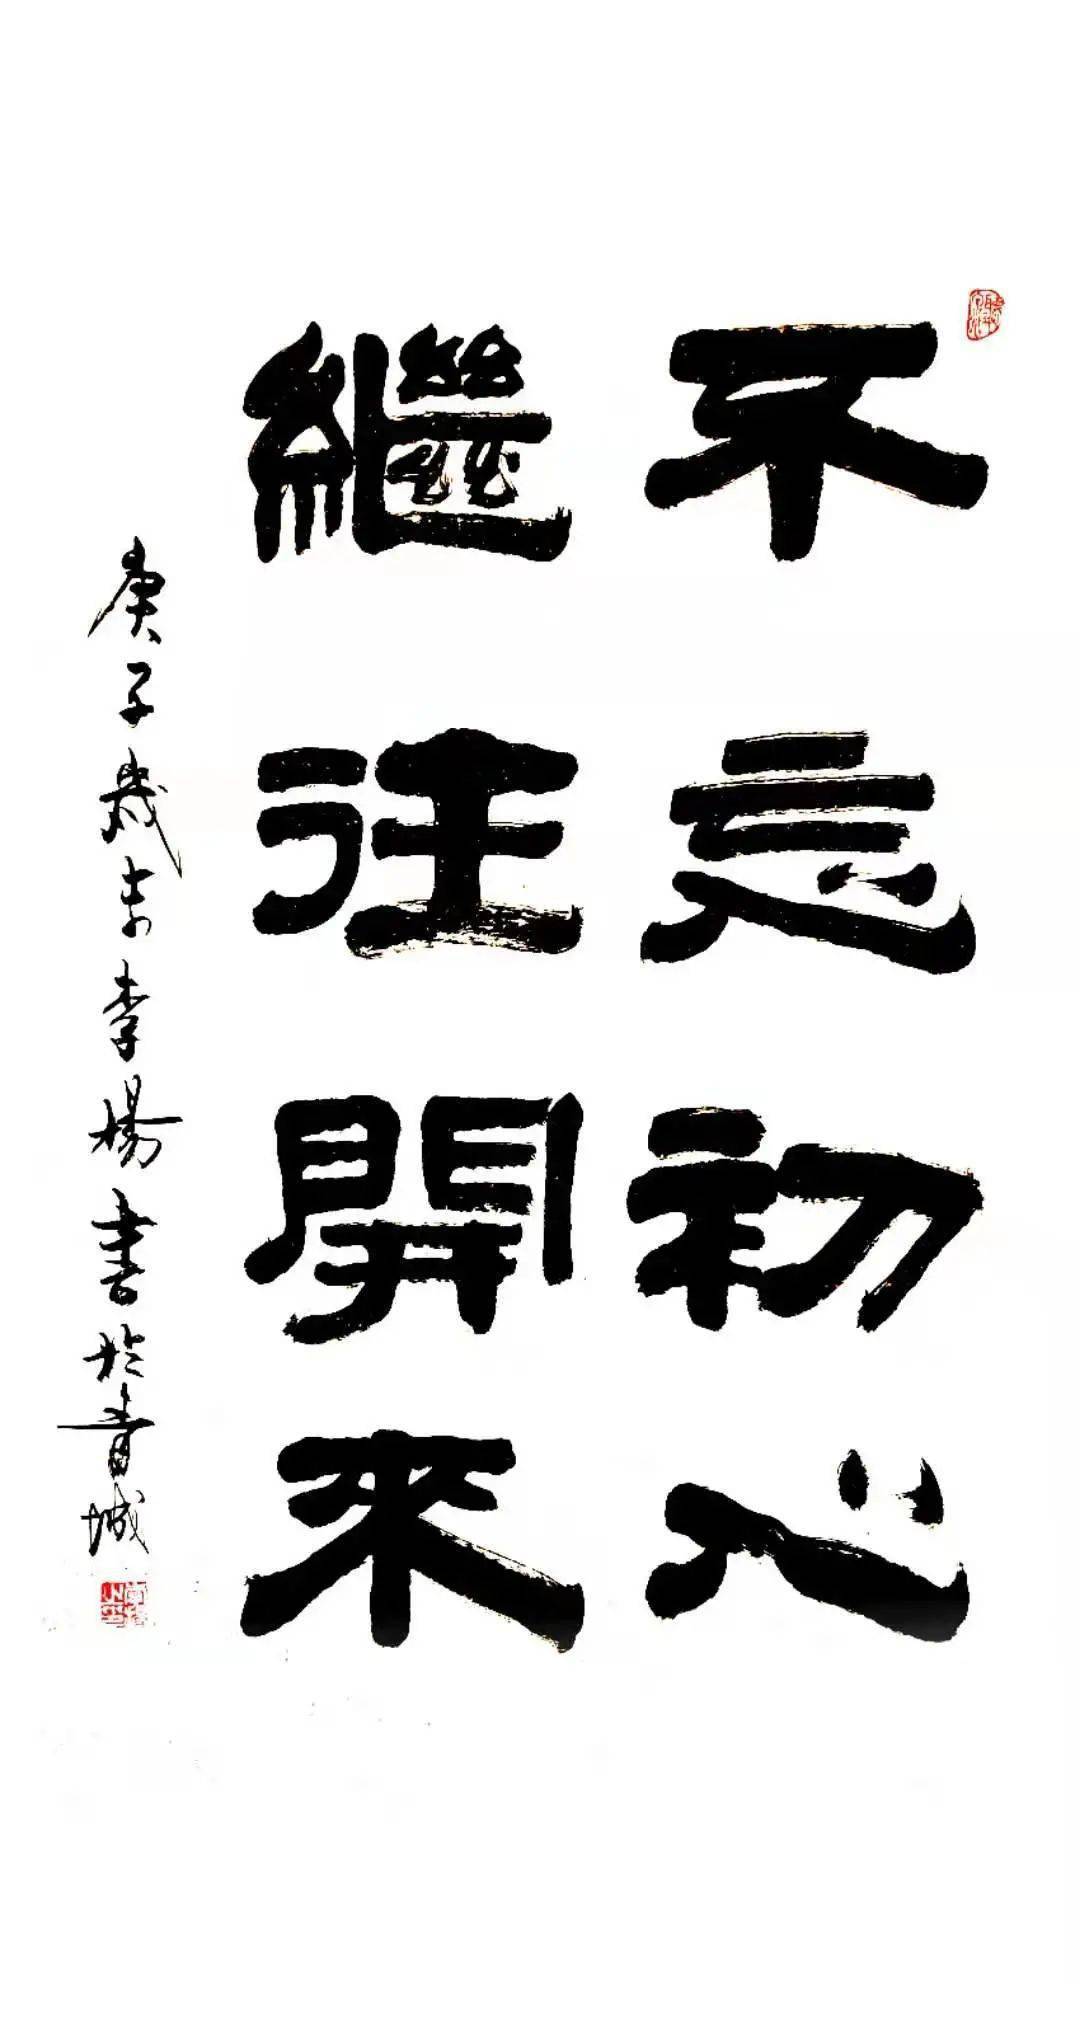 不忘初心
繼往開來
庚子歲末李楊書於青城